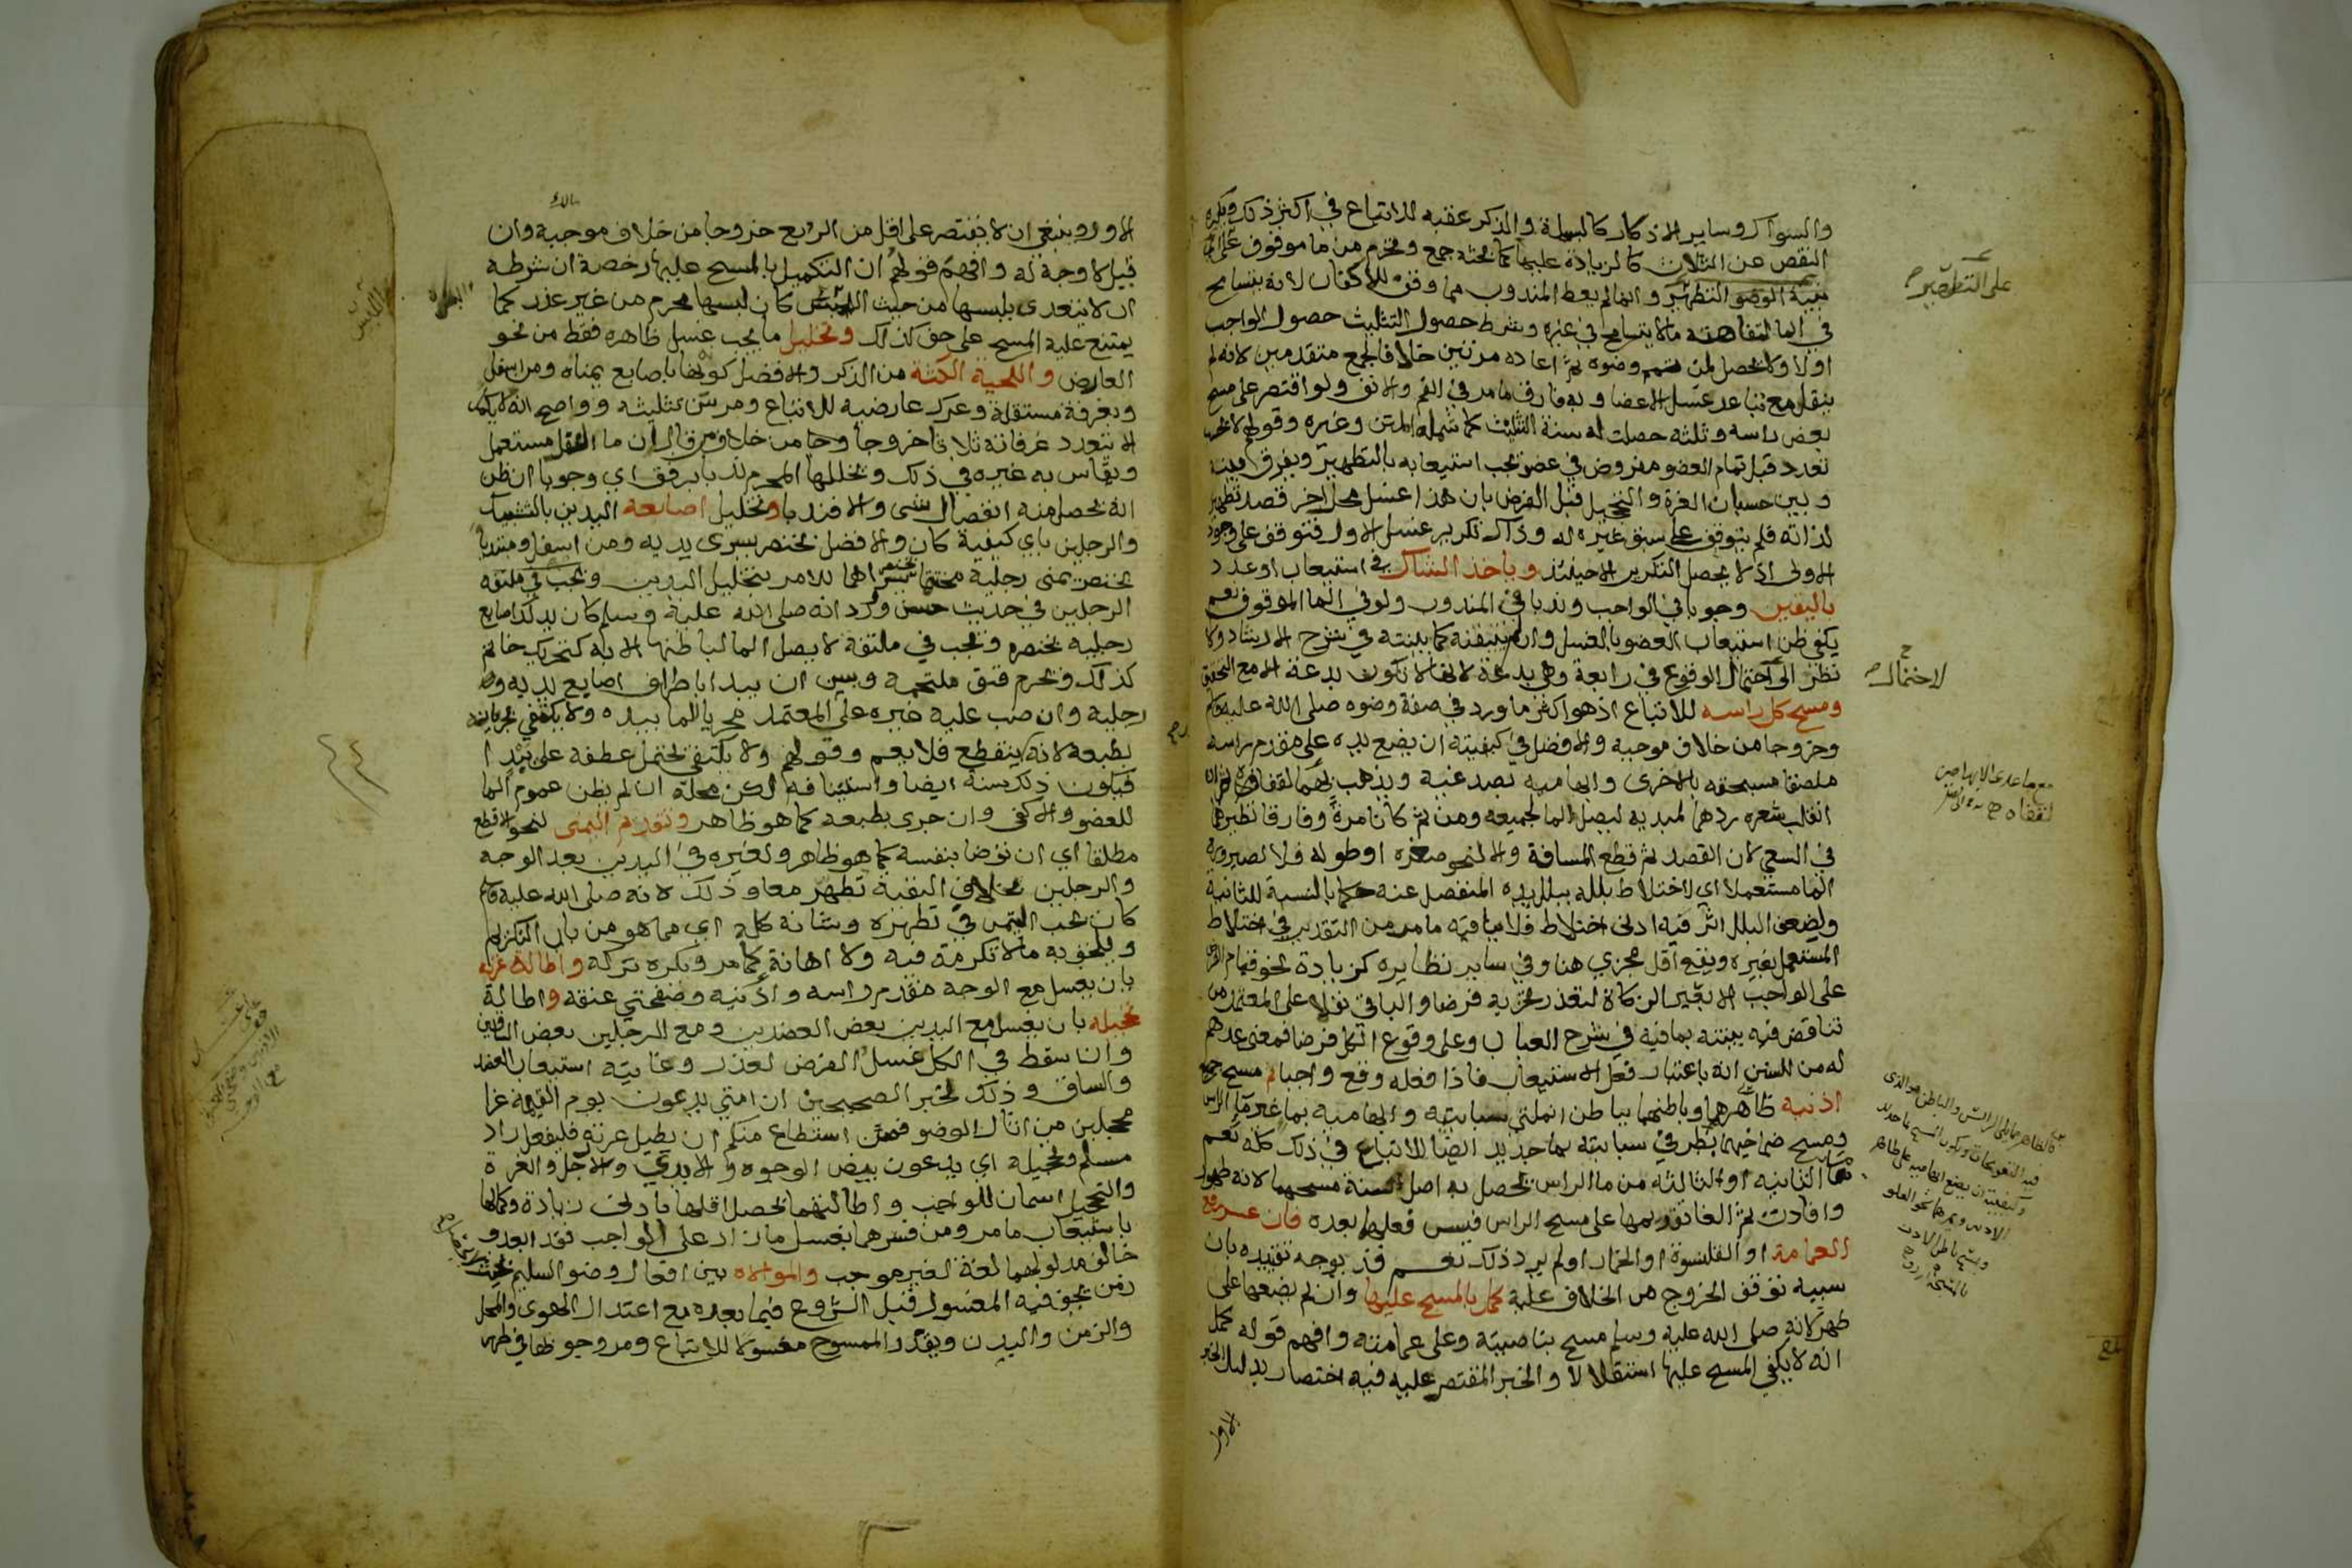 والسواك وساير الاذكار كالبسملة والذكر عقبه للاتباع في اكثر ذلك ويكره
النقص عن الثلاث كالزيادة عليها كما بحثه جمع وتحرم من ما موقوف على
التطهير
بنية الوضو التطهر وانما لم يعط المندوب مما وقف للاكفان لانه يتسامح
في الما لتفاهته ما لا يتسامح في غيره وشرط حصول التثليث حصول الواجب
اولا ولا يحصل لمن تمم وضوه ثم اعاده مرتين خلافا لجمع متقدمين لانه لم
ينقل مع تباعد غسل الاعضا وبه فارق ما مر في الفم والانف ولو اقتصر على مسح
بعض راسه وثلثه حصلت له سنة التثليث كما شمله المتن وغيره وقولهم لا يحسب
تعدد قبل تمام العضو مفروض في عضو يجب استيعابه بالتطهير ويفرق بينه
وبين حسبان الغرة والتحجيل قبل الفرض بان هذا غسل محل اخر قصد تطهيره
لذاته فلم يتوقف على سبق غيره له وذاك تكرير غسل الاول فتوقف على وجود
الاولى اذ لا يحصل التكرير الا حينئذ وياخذ الشاك في استيعاب او عدد
باليقين وجوبا في الواجب وندبا في المندوب ولو في الما الموقوف نعم
يكفي ظن استيعاب العضو بالغسل وان لم يتيقنه كما بينته في شرح الارشاد ولا
نظر الى احتمال الوقوع في رابعة وهي بدعة لانها لا تكون بدعة الا مع التحقق
ومسح كل راسه للاتباع اذ هو اكثر ما ورد في صفة وضوه صلى الله عليه وسلم
وخروجا من خلاف موجبه والافضل في كيفيته ان يضع يده على مقدم راسه
ملصقا مسبحته بالاخرى وابهاميه بصدغيه ويذهب بهما لقفاه ثم ان
انقلب شعره ردهما لمبديه ليصل الما لجميعه ومن ثم كانا مرة وفارقا نظيرهما
في السعي لان القصد ثم قطع المسافة والا لنحو صغره او طوله فلا لصيرورة
الما مستعملا اي لاختلاط بلله ببلل يده المنفصل عنه حكما بالنسبة للثانية
ولضعف البلل اثر فيه ادنى اختلاط فلا ينافيه ما مر من التقدير في اختلاط
المستعمل بغيره ويقع اقل مجزي هنا وفي ساير نظايره كزيادة نحو قيام الفرض
على الواجب الا بعير الزكاة لتعذر تجزيه فرضا والباقي نفلا على المعتمد من
تناقض فيه بينته بما فيه في شرح العباب وعلى وقوع الكل فرضا فمعنى عدهم
له من السنن انه باعتبار فعل الاستيعاب فاذا فعله وقع واجبا ثم مسح جميع
اذنيه ظاهرهما وباطنهما بباطن انملتي سبابتيه وابهاميه بما غير ما الراس
ومسح صماخيهما بطرفي سبابتيه بما جديد ايضا للاتباع في ذلك كله نعم
ما الثانية او الثالثة من ما الراس يحصل به اصل سنة مسحهما لانه طهور
وافادت ثم الغا تقديمها على مسح الراس فيسن فعلها بعده فان عسر رفع
العمامة او القلنسوة او الخمار او لم يرد ذلك نعم قد يوجه تقييده بان
سببه توقف الخروج من الخلاف عليه كمل بالمسح عليها وان لم يضعها على
طهر لانه صلى الله عليه وسلم مسح بناصيته وعلى عمامته وافهم قوله كمل
انه لا يكفي المسح عليها استقلالا والخبر المقتصر عليه فيه اختصار بدليل الخبر
الاول
على التطهير
لاحتمال
مع ما عدى الابهامين
لقفاه
الاول وينبغي ان لا يقتصر على اقل من الربع خروجا من خلاف موجبه وان
قيل لا وجه له وافهم قولهم ان التكميل بالمسح عليها رخصة ان شرطه
ان لا يتعدى بلبسها من حيث اللبس كان لبسها محرم من غير عذر كما
يمتنع عليه المسح على خف كذلك وتخليل ما يجب غسل ظاهره فقط من نحو
العارض واللحية الكثة من الذكر والافضل كونه باصابع يمناه ومن اسفل
وبغرفة مستقلة وعرك عارضيه للاتباع ومر سن تثليثه وواضح انه لا يكمل
الا بتعدد غرفاته ثلاثا خروجا من خلاف من قال ان ما النفل مستعمل
ويقاس به غيره في ذلك ويخللها المحرم ندبا برفق اي وجوبا ان ظن
انه يحصل منه انفصال شي والا فندبا وتخليل اصابعه اليدين بالتشبيك
والرجلين باي كيفية كان والافضل بخنصر يسرى يديه ومن اسفل ومبتديا
بخنصر يمنى رجليه مختتما بخنصر يسراهما للامر بتخليل اليدين
الرجلين في حديث حسن وورد انه صلى الله عليه وسلم كان يدلك اصابع
رجليه بخنصره ويجب في ملتفة لا يصل الما لباطنها الا به كتحريك خاتم
كذلك ويحرم فتق ملتحمة وبسن ان يبدا باطراف اصابع يديه
رجليه وان صب عليه غيره على المعتمد مجريا للما بيده ولا يكتفي بجريانه
بطبعه لانه ينقطع فلا يعم وقولهم ولا يكتفي يحتمل عطفه على يبدا
فيكون ذلك سنة ايضا واستينافه لكن محله ان لم يظن عموم الما
للعضو والا كفى وان جرى بطبعه كما هو ظاهر وتقديم اليمنى لنحو الاقطع
مطلقا اي ان توضا بنفسه كما هو ظاهر ولغيره في اليدين بعد الوجه
والرجلين بخلاف البقية تطهر معا وذلك لانه صلى الله عليه وسلم
كان يحب التيمن في تطهره وشانه كله اي مما هو من باب التكريم
ويلحق به ما لا تكرمة فيه ولا اهانة كما مر ويكره تركه واطالة غرته
بان يغسل مع الوجه مقدم راسه واذنيه وصفحتي عنقه واطالة
تحجيله بان يغسل مع اليدين بعض العضدين ومع الرجلين بعض الساقين
وان سقط في الكل غسل الفرض لعذر وغايته استيعاب العضد
والساق وذلك لخبر الصحيحين ان امتي يدعون يوم القيمة غرا
محجلين من اثار الوضو فمن استطاع منكم ان يطيل غرته فليفعل زاد
مسلم وتحجيله اي يدعون بيض الوجوه والايدي والارجل والغرة
والتحجيل اسمان للواجب واطالتهما تحصل اقلها بادنى زيادة وكمالها
باستيعاب ما مر ومن فسرهما بغسل ما زاد على الواجب فقد ابعد و
خالف مدلولهما لغة لغير موجب والموالاه بين افعال وضو السليم بحيث
زمن يجف فيه المغسول قبل الشروع فيما بعده مع اعتدال الهوى والمحل
والزمن والبدن ويقدر الممسوح مغسولا للاتباع ومر وجوبها في طهر